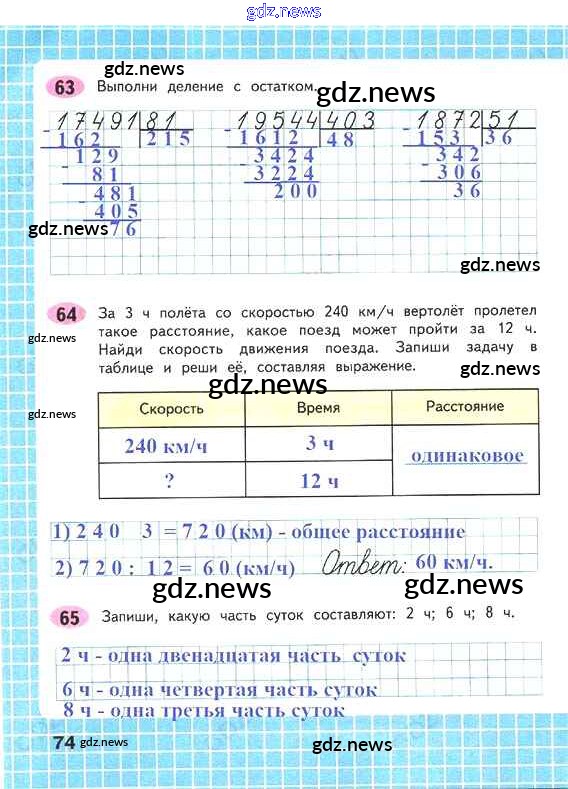 gdz.news
gdz.news
63 Выполни деление с остатком.
gdz.news
17491 81 19544 403 1872 51
- 162 215 - 1612 48 - 153 36
129 3424 342
- 81 - 3224 - 306
481 200 36
- 405
gdz.news 76
gdz.news
64 За 3 ч полёта со скоростью 240 км/ч вертолёт пролетел
такое расстояние, какое поезд может пройти за 12 ч.
gdz.news
Найди скорость движения поезда. Запиши задачу в
таблице и реши её, составляя выражение.
gdz.news
gdz.news
Скорость Время Расстояние
gdz.news
240 км/ч 3 ч одинаковое
? 12 ч
1) 2 4 0 3 = 7 2 0 (км) - общее расстояние
2) 7 2 0 : 1 2 = 6 0 (км/ч) Ответ: 60 км/ч.
gdz.news gdz.news
65 Запиши, какую часть суток составляют: 2 ч; 6 ч; 8 ч.
2 ч - одна двенадцатая часть суток
6 ч - одна четвертая часть суток
8 ч - одна третья часть суток
74 gdz.news gdz.news